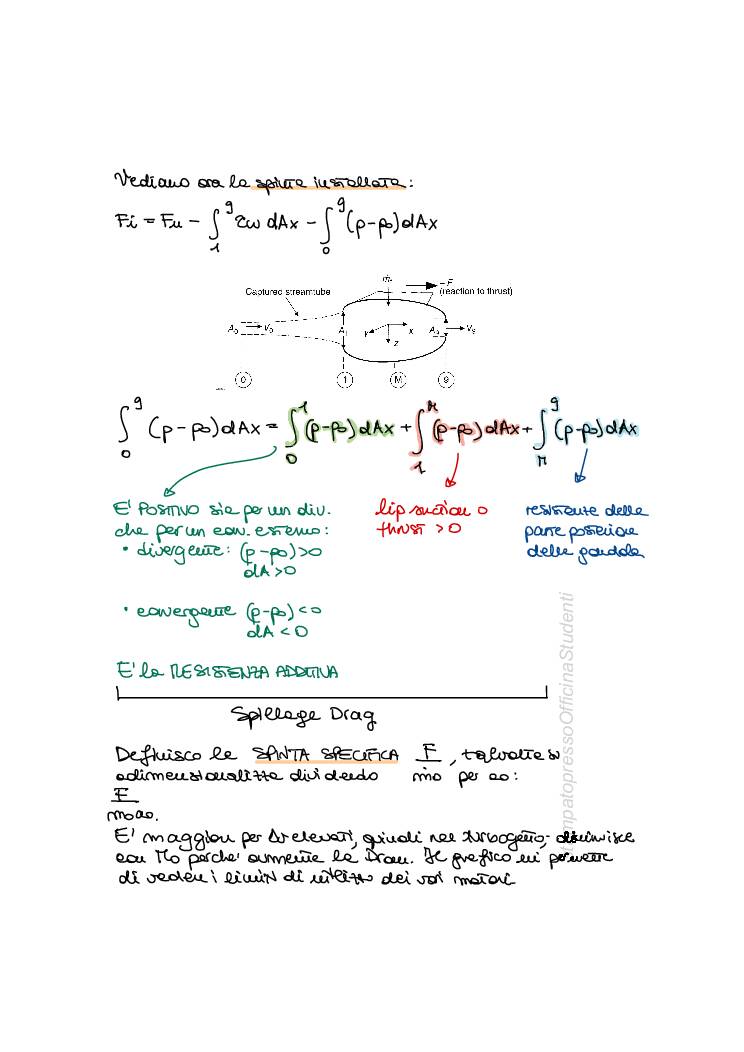 Vediamo ora la spinta installata:
Fi = Fu - ∫₁⁹ τw dAx - ∫₀⁹ (p-p₀) dAx
ṁf
-F
Captured streamtube
(reaction to thrust)
A₀ V₀ A₁ y x A₉ V₉
z
0 1 M 9
∫₀⁹ (p-p₀) dAx = ∫₀¹ (p-p₀) dAx + ∫₁ᴹ (p-p₀) dAx + ∫ᴹ⁹ (p-p₀) dAx
E' POSITIVO sia per un div.
che per un conv. esterno:
• divergente: (p-p₀)>0
dA>0
• convergente (p-p₀)<0
dA<0
E' la RESISTENZA ADDITIVA
lip suction o
thrust >0
resistenza della
parte posteriore
della gondola
Spillage Drag
Definisco la SPINTA SPECIFICA F/ṁ₀, talvolta si
adimensionalizza dividendo per a₀:
F
ṁ₀a₀.
E' maggiore per Δv elevati, quindi nel turbogetto; diminuisce
con M₀ perché aumenta la Dram. Il grafico mi permette
di vedere i limiti di utilizzo dei vari motori
mpatopressoOfficinaStudenti